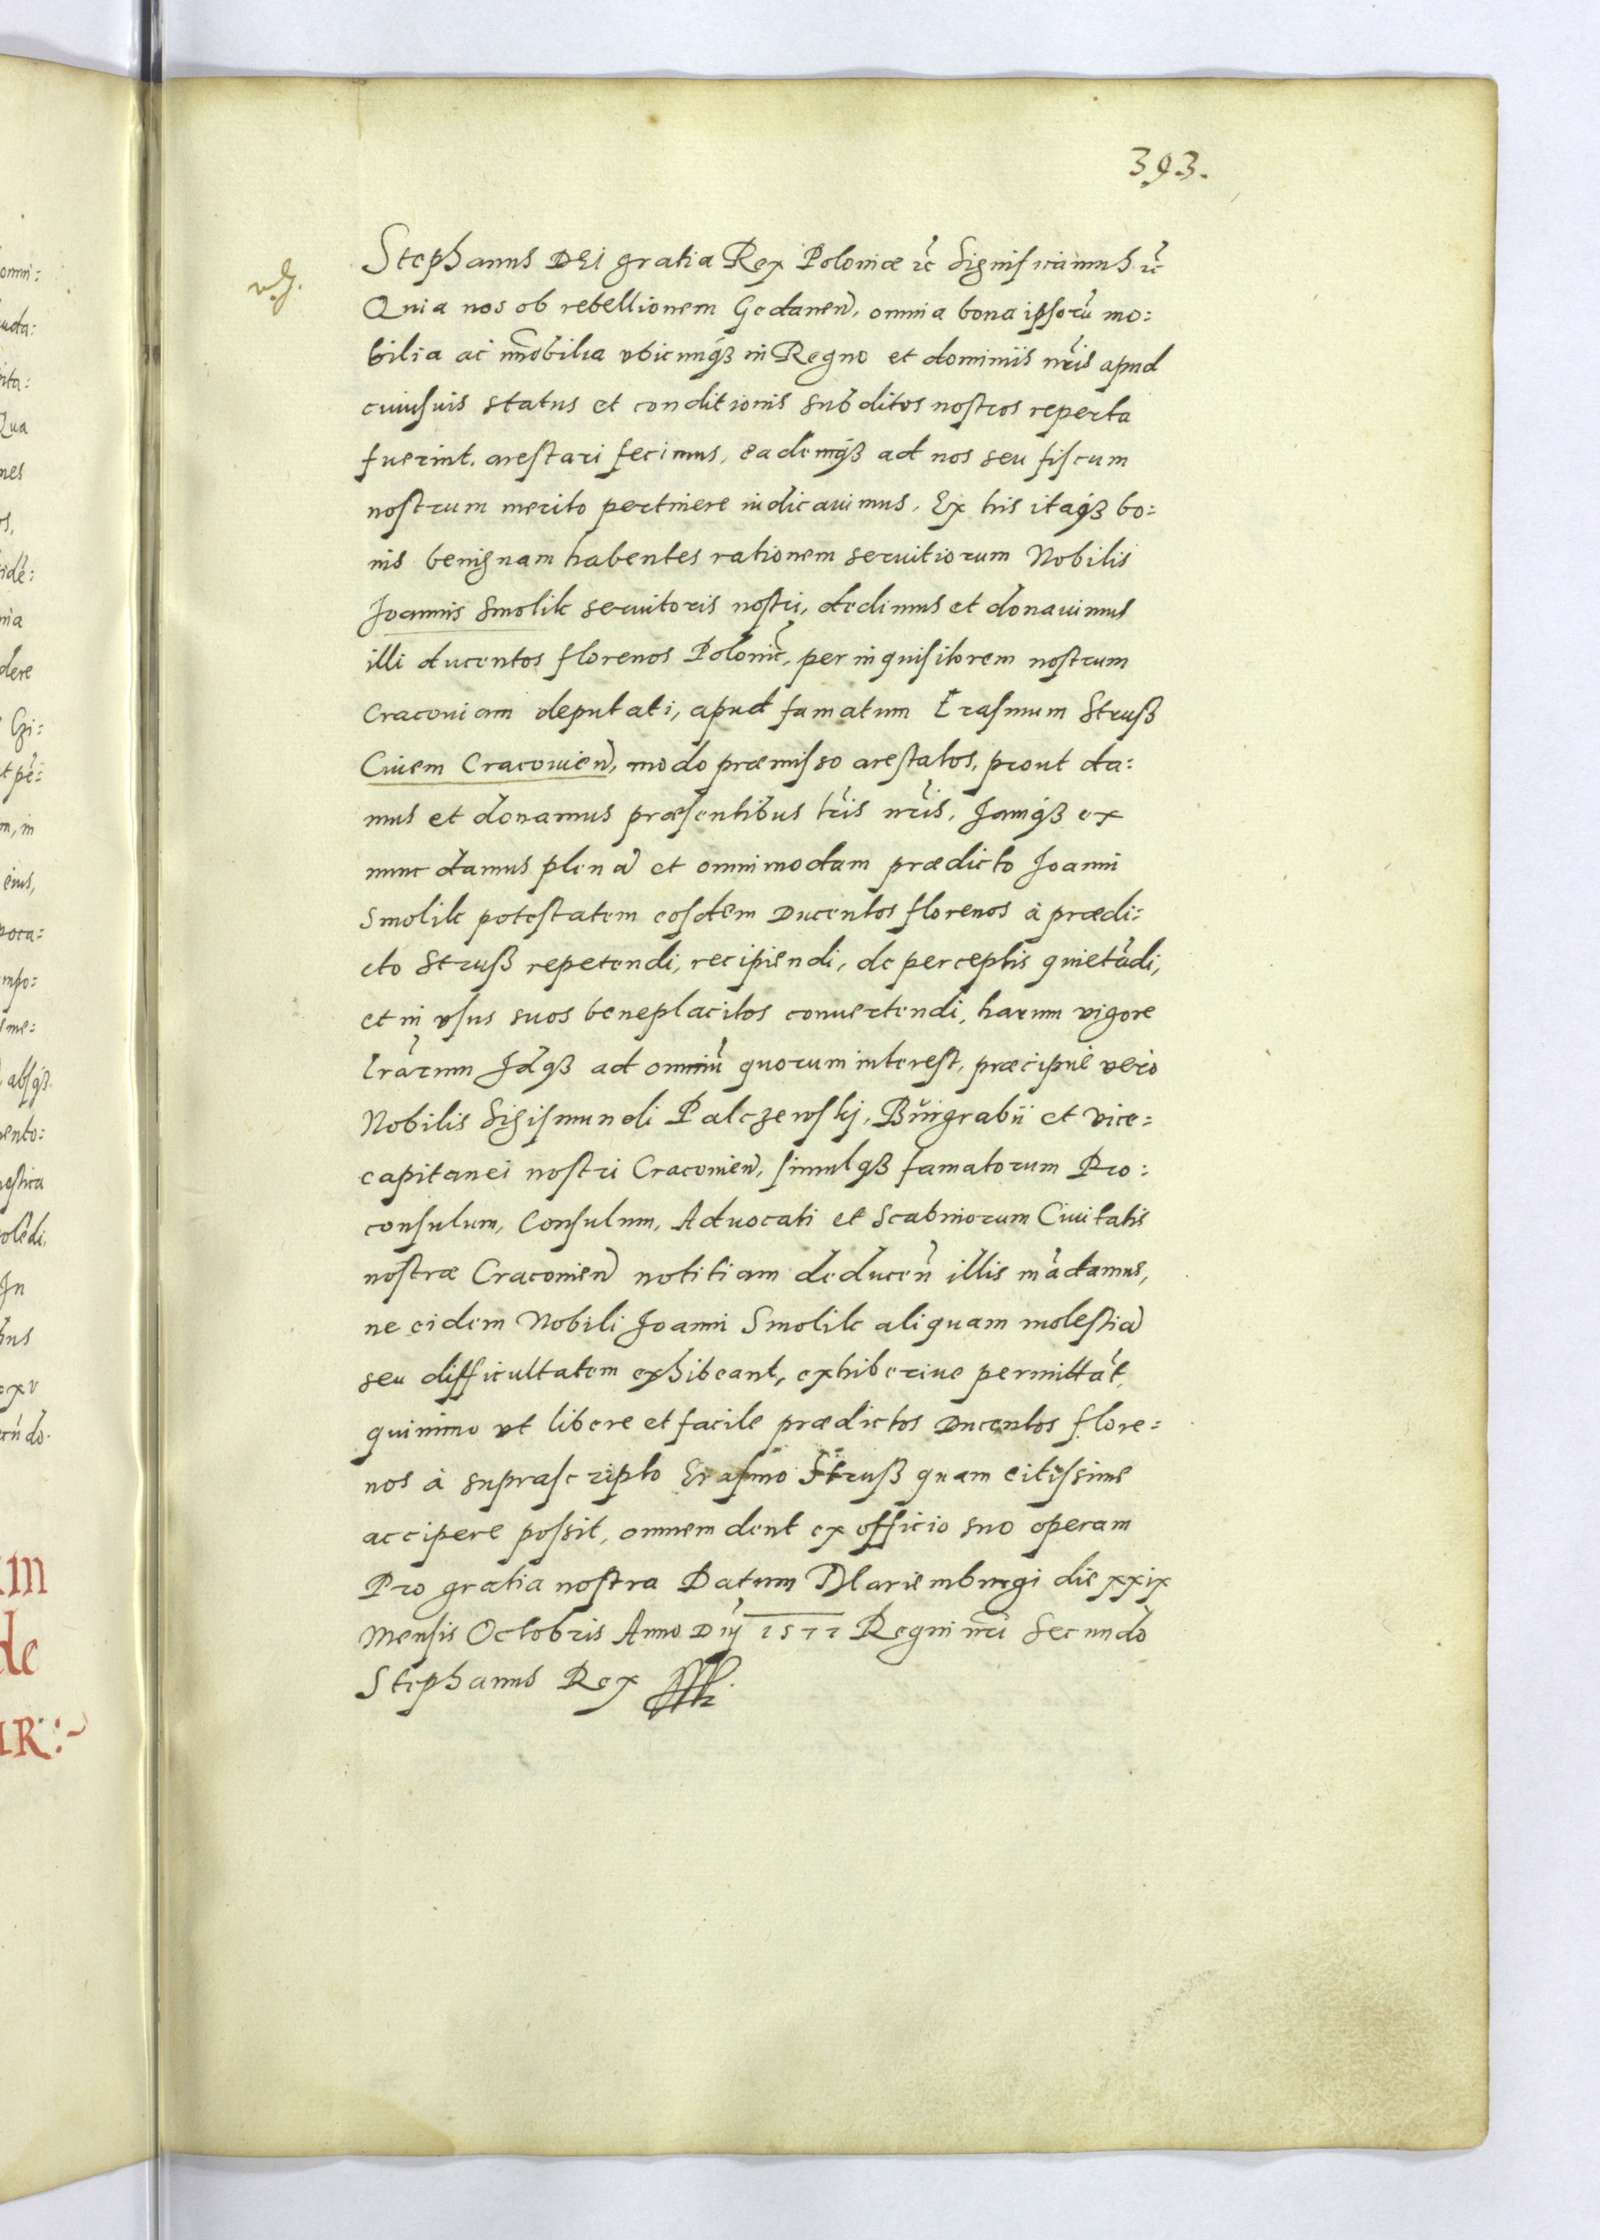 393.
Stephanus DEI gratia Rex Poloniæ ɾc̃ Significamus ɾc̃
Quia nos ob rebellionem Gedanen̄, omnia bona ipsorũ mo:
bilia ac im̃obilia vbicunqꝫ in Regno et dominiis nr̃is apud
cuiusuis status et conditionis subditos nostros reperta
fuerint. arestari fecimus, eademqꝫ ad nos seu fiscum
nostrum merito pertinere iudicauimus. Ex his itaqꝫ bo:
nis benignam habentes rationem seruitiorum Nobilis
Joannis Smolik seruitoris nostri, dedimus et donauimus
illi ducentos florenos Polonic̃, per inquisitorem nostrum
Cracouiam deputati, apud famatum Erasmum Struß
Ciuem Cracouien̄, modo præmisso arestatos, prout da:
mus et donamus præsentibus lr̃is nr̃is, Jamqꝫ ex
nunc damus plenã et omnimodam prædicto Joanni
Smolik potestatem eosdem Ducentos florenos à prædi:
cto Struß repetendi, recipiendi, de perceptis quietãdi,
et in vsus suos beneplacitos conuertendi, harum vigore
lrãrum Jdqꝫ ad omniũ quorum interest, præcipuè vero
Nobilis Sigismundi Palczewskj, Burgrabii et Vice:
capitanei nostri Cracouien̄, simulqꝫ famatorum Pro:
consulum, Consulum, Aduocati et Scabinorum Ciuitatis
nostræ Cracouien̄ notitiam deducen̄ illis mãdamus,
ne eidem Nobili Joanni Smolik aliquam molestiã
seu difficultatem exhibeant, exhiberiue permittãt,
quinimo vt libere et facile prædictos Ducentos flore:
nos à suprascripto Erasmo Struß quam citissime
accipere possit, omnem dent ex officio suo operam
Pro gratia nostra Datum Mariemburgi die xxix
Mensis Octobris Anno Dnj̃ 1577 Regni nr̃i Secundo
Stephanus Rex
omni:
uda:
Qua
nes
idẽ:
dere
m, in
eius,
poca:
mpo:
absqꝫ
ento:
estica
Jn
de